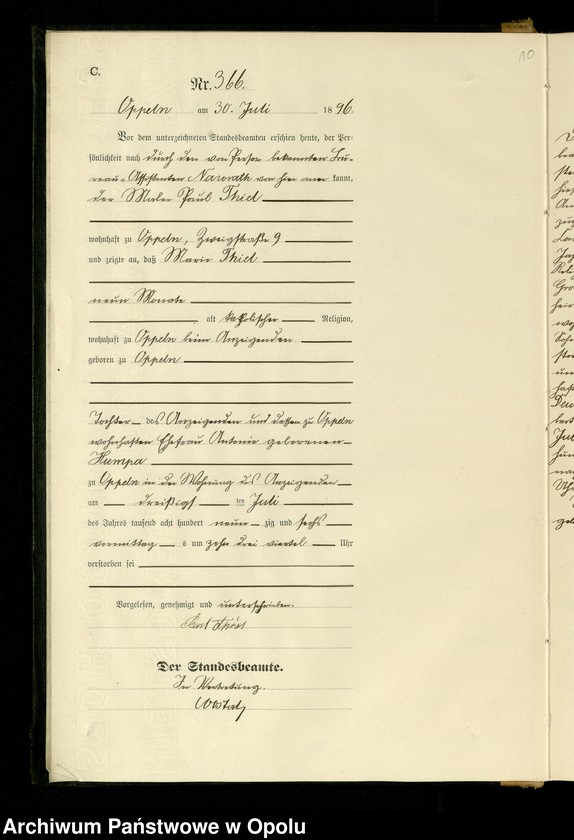 10
C.
Nr. 366.
Oppeln am 30. Juli 1896.
Vor dem unterzeichneten Standesbeamten erschien heute, der Per-
sönlichkeit nach durch den von Person bekannten Bü-
reau-Assistenten Nawrath von hier aner kannt,
der Maler Paul Thiel
wohnhaft zu Oppeln, Zweigstraße 9
und zeigte an, daß Marie Thiel
neun Monate
alt katholischer Religion,
wohnhaft zu Oppeln beim Anzeigenden
geboren zu Oppeln
Tochter des Anzeigenden und dessen zu Oppeln
wohnhaften Ehefrau Antonie geborenen
Kumpa
zu Oppeln in der Wohnung des Anzeigenden
am dreißigsten Juli
des Jahres tausend acht hundert neun zig und sechs
vormittags um zehn drei viertel Uhr
verstorben sei
Vorgelesen, genehmigt und unterschrieben.
Paul Thiel
Der Standesbeamte.
In Vertretung.
Archiwum Państwowe w Opolu